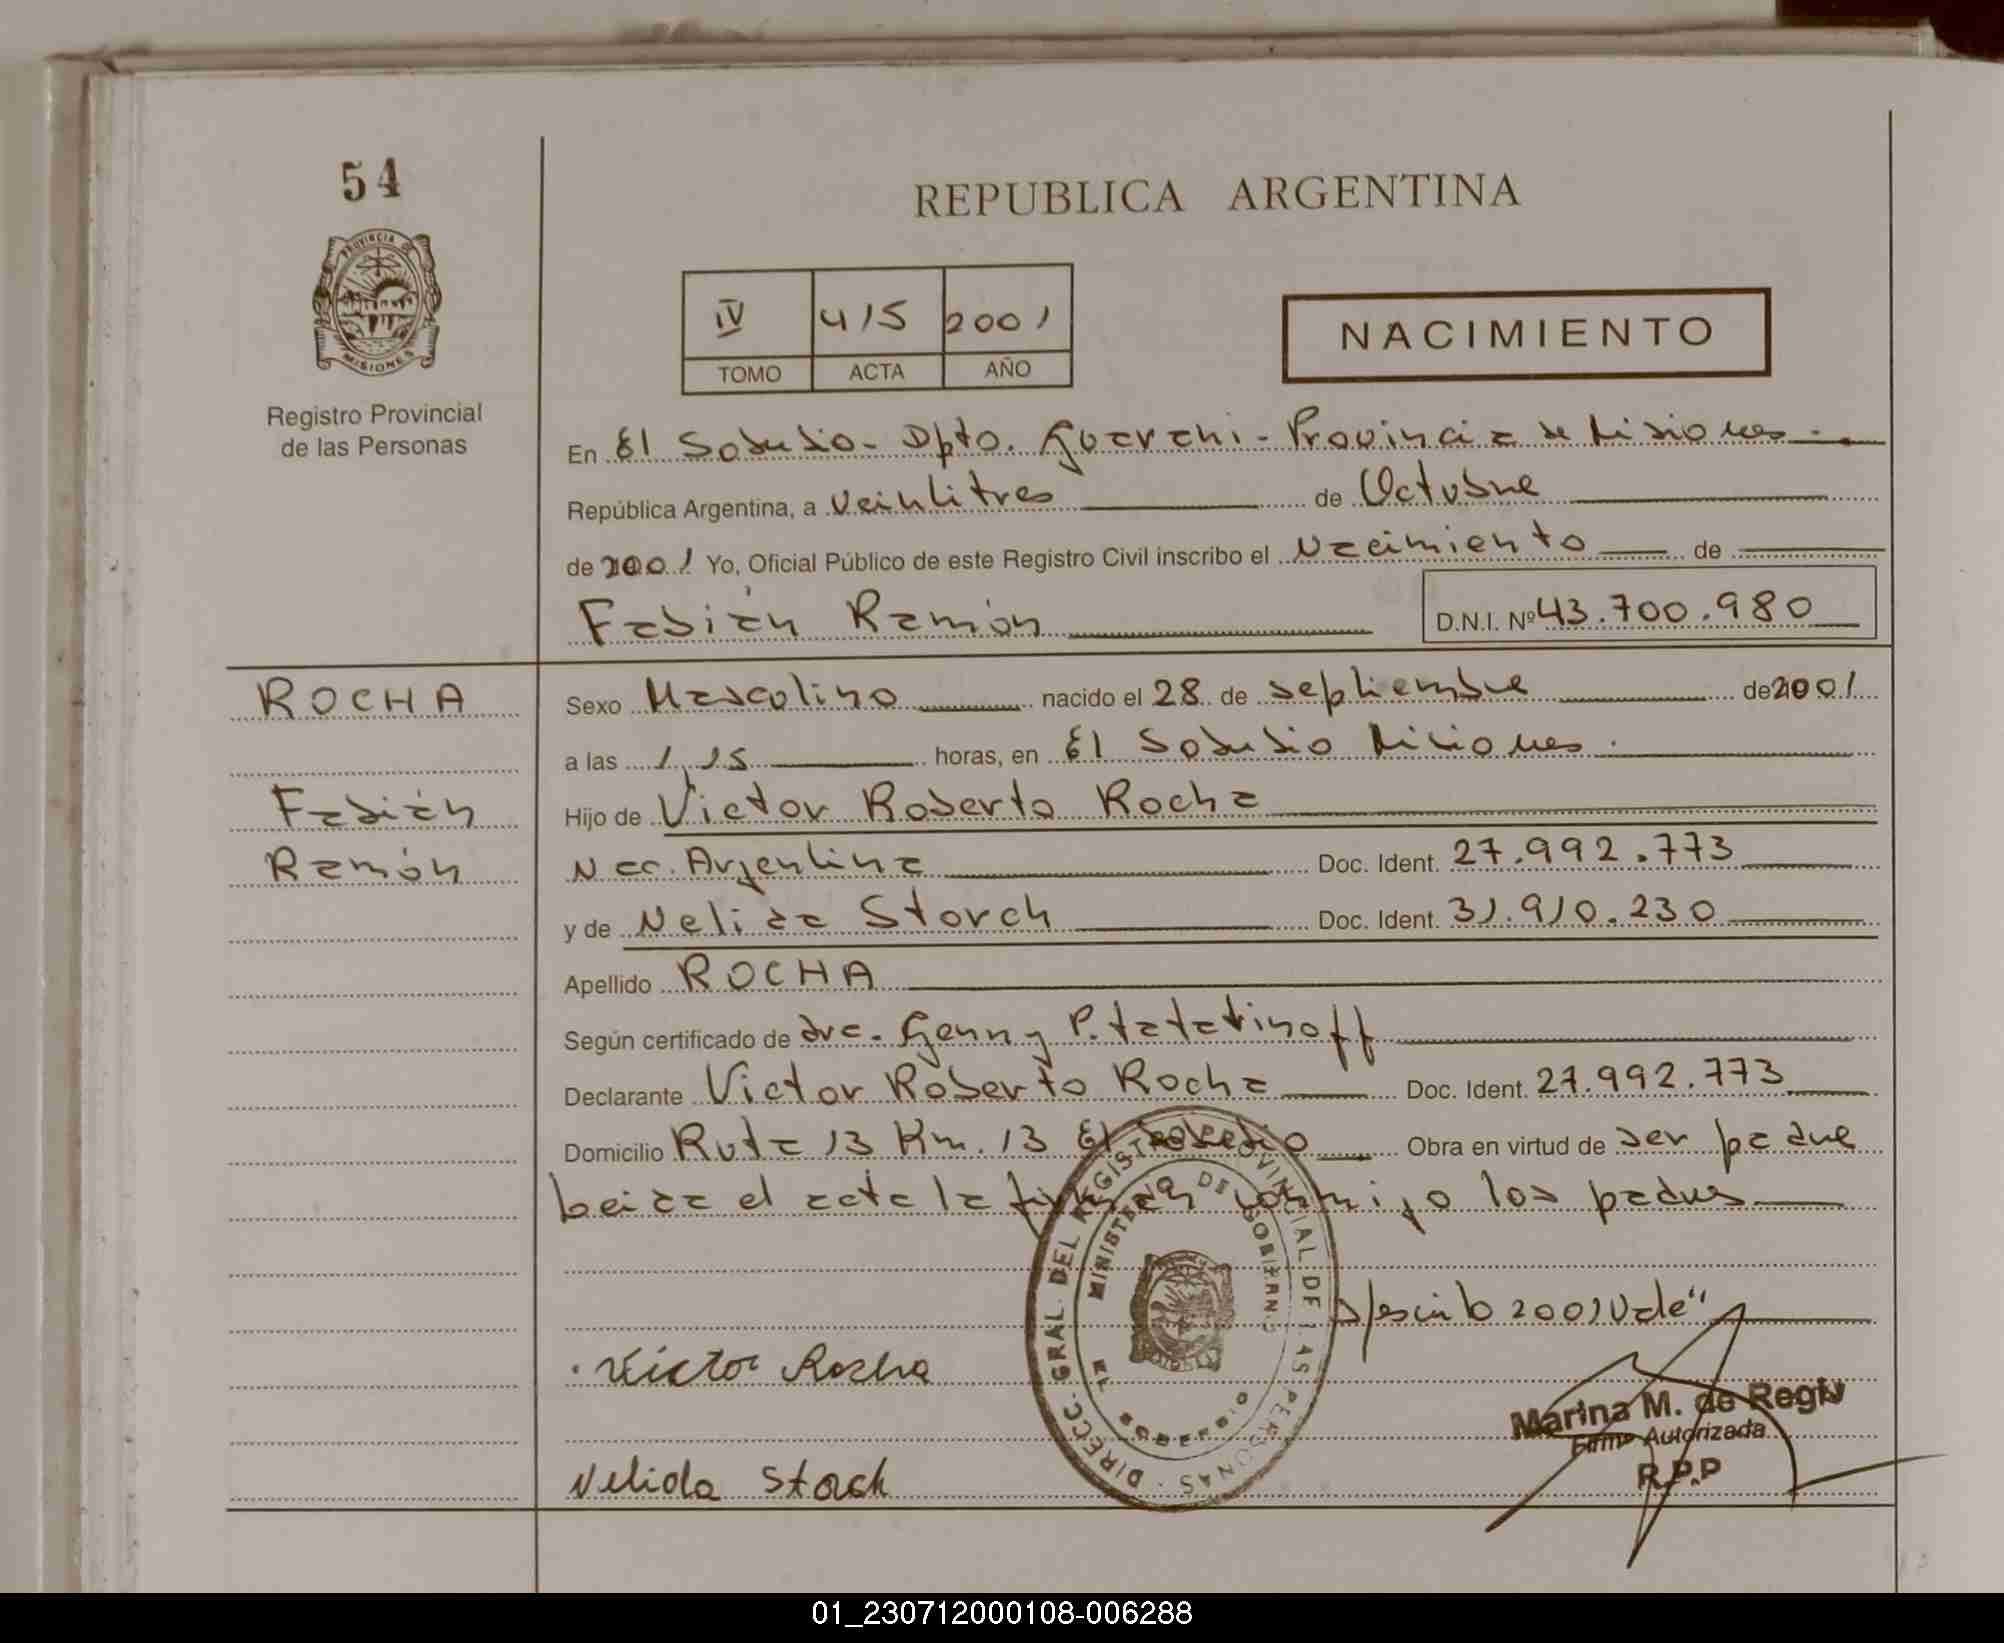 54
PROVINCIA DE
MISIONES
Registro Provincial
de las Personas
REPUBLICA ARGENTINA
IV 415 2001
TOMO ACTA AÑO
NACIMIENTO
En El Soberbio - Dpto. Guarani - Provincia de Misiones -.
República Argentina, a Veintitres de Octubre
de 2001 Yo, Oficial Público de este Registro Civil inscribo el Nacimiento de
Fabián Ramón D.N.I. Nº 43.700.980
ROCHA
Fabián
Ramón
Sexo Masculino nacido el 28 de septiembre de 2001
a las 1,15 horas, en El Soberbio Misiones.
Hijo de Victor Roberto Rocha
Nac. Argentina Doc. Ident. 27.992.773
y de Nelida Storch Doc. Ident. 31.910.230
Apellido ROCHA
Según certificado de dra. Genny P. Tatarinoff
Declarante Victor Roberto Rocha Doc. Ident. 27.992.773
Domicilio Ruta 13 Km. 13 El Soberbio Obra en virtud de ser padre
leida el acta la firman conmigo los padres
s/escrito 2001 Vale"
Victor Rocha
Nelida Storch
DIRECC. GRAL. DEL REGISTRO PROVINCIAL DE LAS PERSONAS
MINISTERIO DE GOBIERNO
EL SOBERBIO
Marina M. de Regiv
Firma Autorizada
R.P.P
01_230712000108-006288